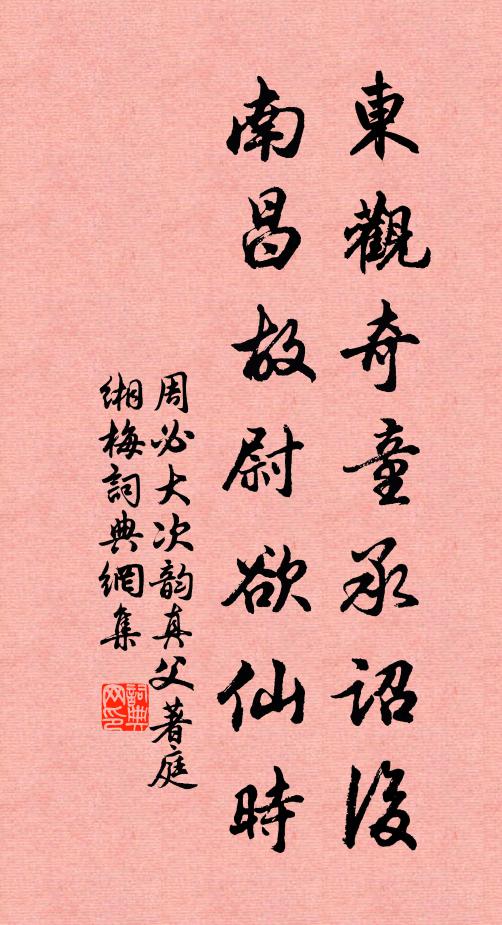 東觀奇童承詔後
南昌故尉欲仙時
周必大次韵真父著庭
缃梅詞典網集
詞典网印